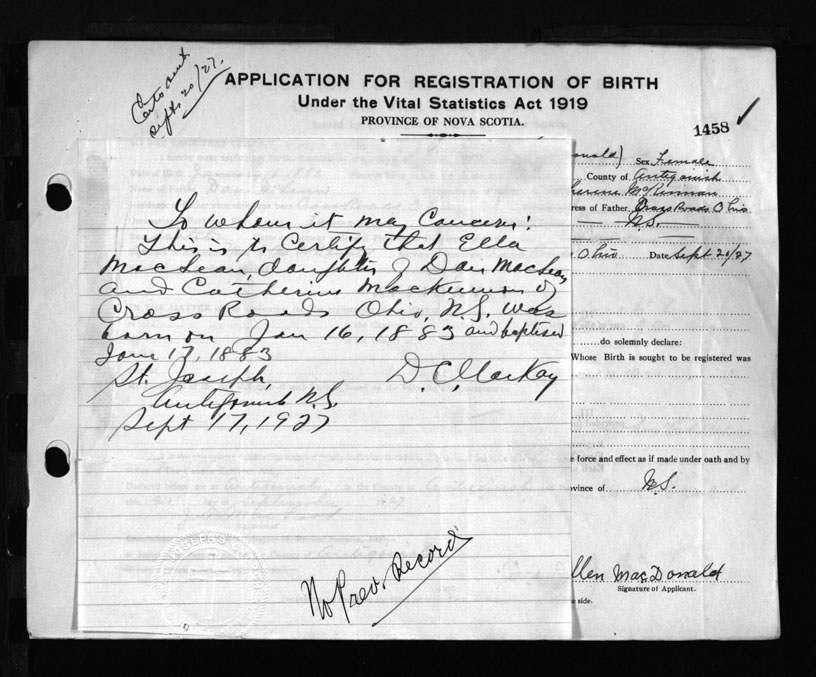 Sept 20/27.
APPLICATION FOR REGISTRATION OF BIRTH
Under the Vital Statistics Act 1919
PROVINCE OF NOVA SCOTIA.
1458
onald) Sex Female
County of Antigonish
herine McKinnon
ress of Father, Cross Roads Ohio
N.S.
Ohio Date Sept 20/27
do solemnly declare:
Whose Birth is sought to be registered was
e force and effect as if made under oath and by
vince of N.S.
llen MacDonald
Signature of Applicant.
e side.
To whom it may Concern:
This is to Certify that Ella
MacLean, daughter of Dan MacLean
and Catherine MacKinnon of
Cross Roads Ohio, N.S. was
born on Jan 16, 1883 and baptised
Jan 17, 1883
St. Joseph, D.C. MacKay
Antigonish N.S.
Sept 17, 1927
No Prev. Record